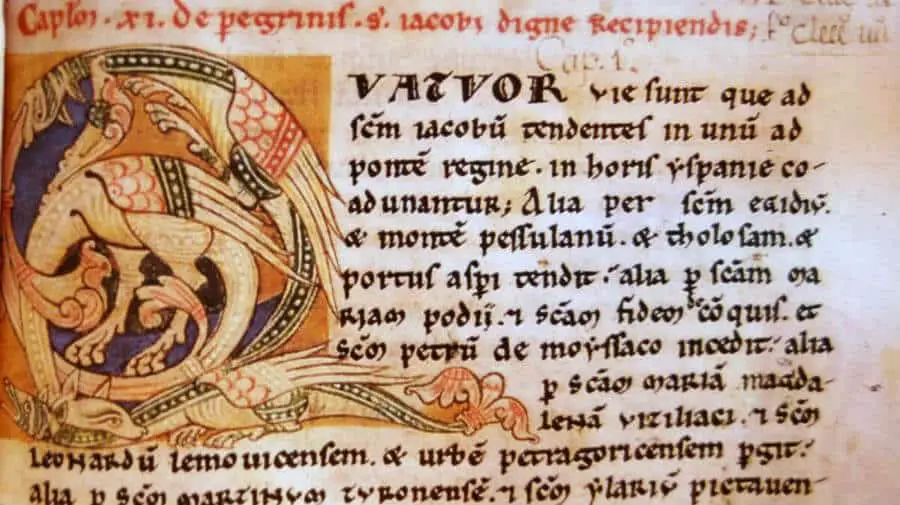 Capło̅s .xı. De peg̅rinis .s̅. iacobi digne recipiendis;
Cap. 1.
QVATVOR vie sunt que ad
sc̅m iacobu̅ tendentes in unu̅ ad
ponte̅ regine. in horis yspanie co-
adunantur; Alia per sc̅m egidiu̅.
& monte̅ pessulanu̅. & tholosam. &
portus asp̅i tendit. alia p̱ sc̅am ma
riam podii. ⁊ sc̅am fidem de co̅quis. et
sc̅m petru̅ de moyssaco incedit. alia
p̱ sc̅am maria̅ magda-
lena̅ viziliaci. ⁊ sc̅m
leonardu̅ lemovicensem. & urbe̅ petragoricensem p̱git.
alia p̱ sc̅m martinum turonense̅. ⁊ sc̅m ylariu̅ pictaven-